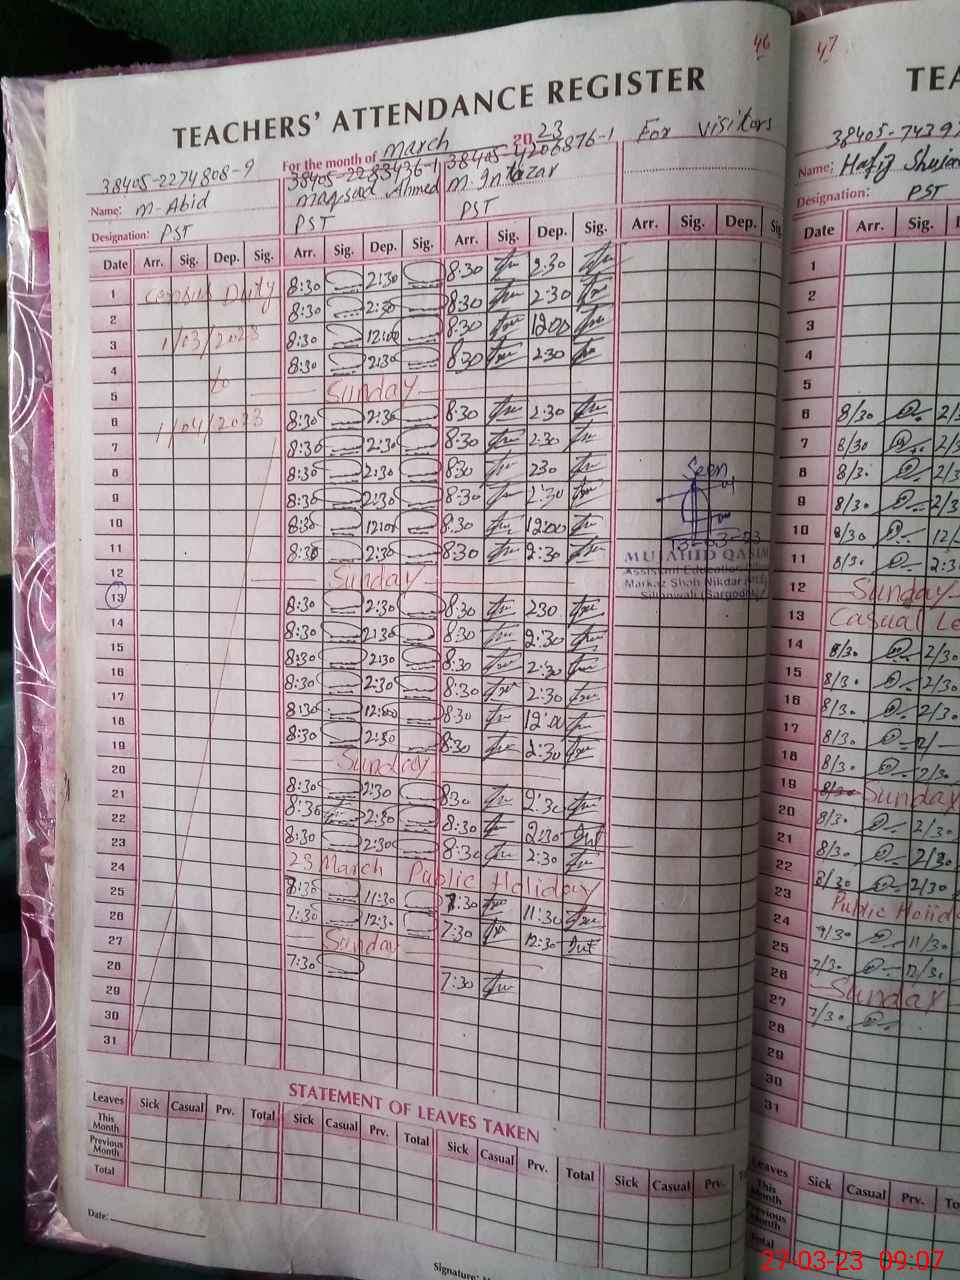 46
TEACHERS' ATTENDANCE REGISTER
For the month of March 2023
For visitors
38405-2274808-9
38405-2283436-1
38405-4206876-1
Name: M-Abid
Maqsood Ahmed
M. Intazar
Designation: PST
PST
PST
Date Arr. Sig. Dep. Sig. Arr. Sig. Dep. Sig. Arr. Sig. Dep. Sig. Arr. Sig. Dep. Sig
Census Duty
1/03/2023
to
1/04/2023
1 8:30 2:30 8:30 2:30
2 8:30 2:30 8:30 2:30
3 8:30 12:00 8:30 1200
4 8:30 2:30 8:30 2:30
5 Sunday
6 8:30 2:30 8:30 2:30
7 8:30 2:30 8:30 2:30
8 8:30 2:30 830 230
9 8:30 2:30 8:30 2:30
10 8:30 12:00 8:30 12:00
11 8:30 2:30 8:30 2:30
12 Sunday
13 8:30 2:30 8:30 230
14 8:30 2:30 8:30 2:30
15 8:30 2:30 8:30 2:30
16 8:30 2:30 8:30 2:30
17 8:30 12:00 8:30 12:00
18 8:30 2:30 8:30 2:30
19 Sunday
20 8:30 2:30 830 2:30
21 8:30 2:30 8:30 2:30
22 8:30 2:30 8:30 2:30
23 23 March Public Holiday
24 11:30 7:30 11:30
25 7:30 12:30 7:30 12:30
26 Sunday
27 7:30 7:30
28
29
30
31
Seen
13-03-23
MUJAHID QASIM
Assistant Education
Markaz Shah Nikdar
Sillanwali (Sargodha)
STATEMENT OF LEAVES TAKEN
Leaves Sick Casual Prv. Total Sick Casual Prv. Total Sick Casual Prv. Total Sick Casual Prv.
This Month
Previous Month
Total
Date:
Signature:
47
TEA
38405-7439
Name: Hafiz
Designation: PST
Date Arr. Sig.
1
2
3
4
5
6 8/30 2/3
7 8/30 2/3
8 8/30 2/3
9 8/30 2/3
10 8/30 12/
11 8/30 2:3
12 Sunday
13 Casual Le
14 8/30 2/30
15 8/30 2/30
16 8/30 2/30
17 8/30 2/
18 8/30 2/30
19 Sunday
20 8/30 2/30
21 8/30 2/30
22 8/30 2/30
23 Public Holid
24 11/30
25 7/30 12/30
26 Sunday
27 7/30
28
29
30
31
Leaves Sick Casual Prv. To
This Month
Previous Month
Total
27-03-23 09:07